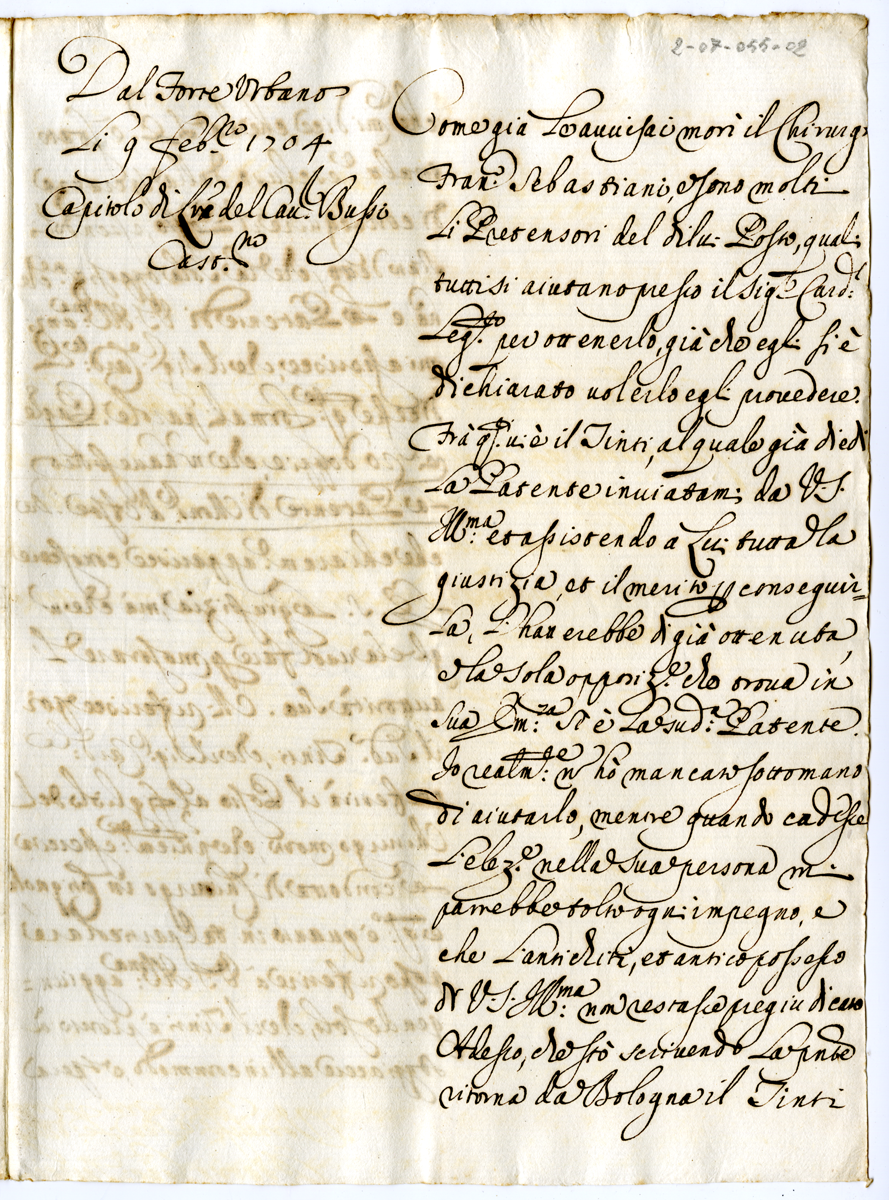 2-07-055-02
Dal Forte Urbano
Li 9 Feb.ro 1704
Capitolo di L'ra del Cav.r Bussi
Cast.no
Come già L'avvisai morì il Chirurg.
Fran.o Sebastiani, e sono molti
Li Pretensori del di lui Posto, quali
tutti si aiutano presso il Sig.r Card.l
Leg.to per ottenerlo, già che egli si è
dichiarato volerlo egli provedere.
Frà q.sti vi è il Tinti, al quale già diedi
La Patente inviatami da V.S.
Ill.ma et assistendo à Lui tutta la
giustizia, et il merito p conseguir=
La, L'haverebbe di già ottenuta,
e la sola opposiz.e che trova in
sua Em.za si è La sud.a Patente.
Io realm.te n' hò mancato sottomano
di aiutarlo, mentre quando cadesse
L'elez.e nella sua persona mi
parrebbe tolto ogni impegno, e
che L'antichità, et antico possesso
di V.S. Ill.ma non restasse pregiudicato
Adesso, che stò scrivendo La pnte
ritorna da Bologna il Tinti